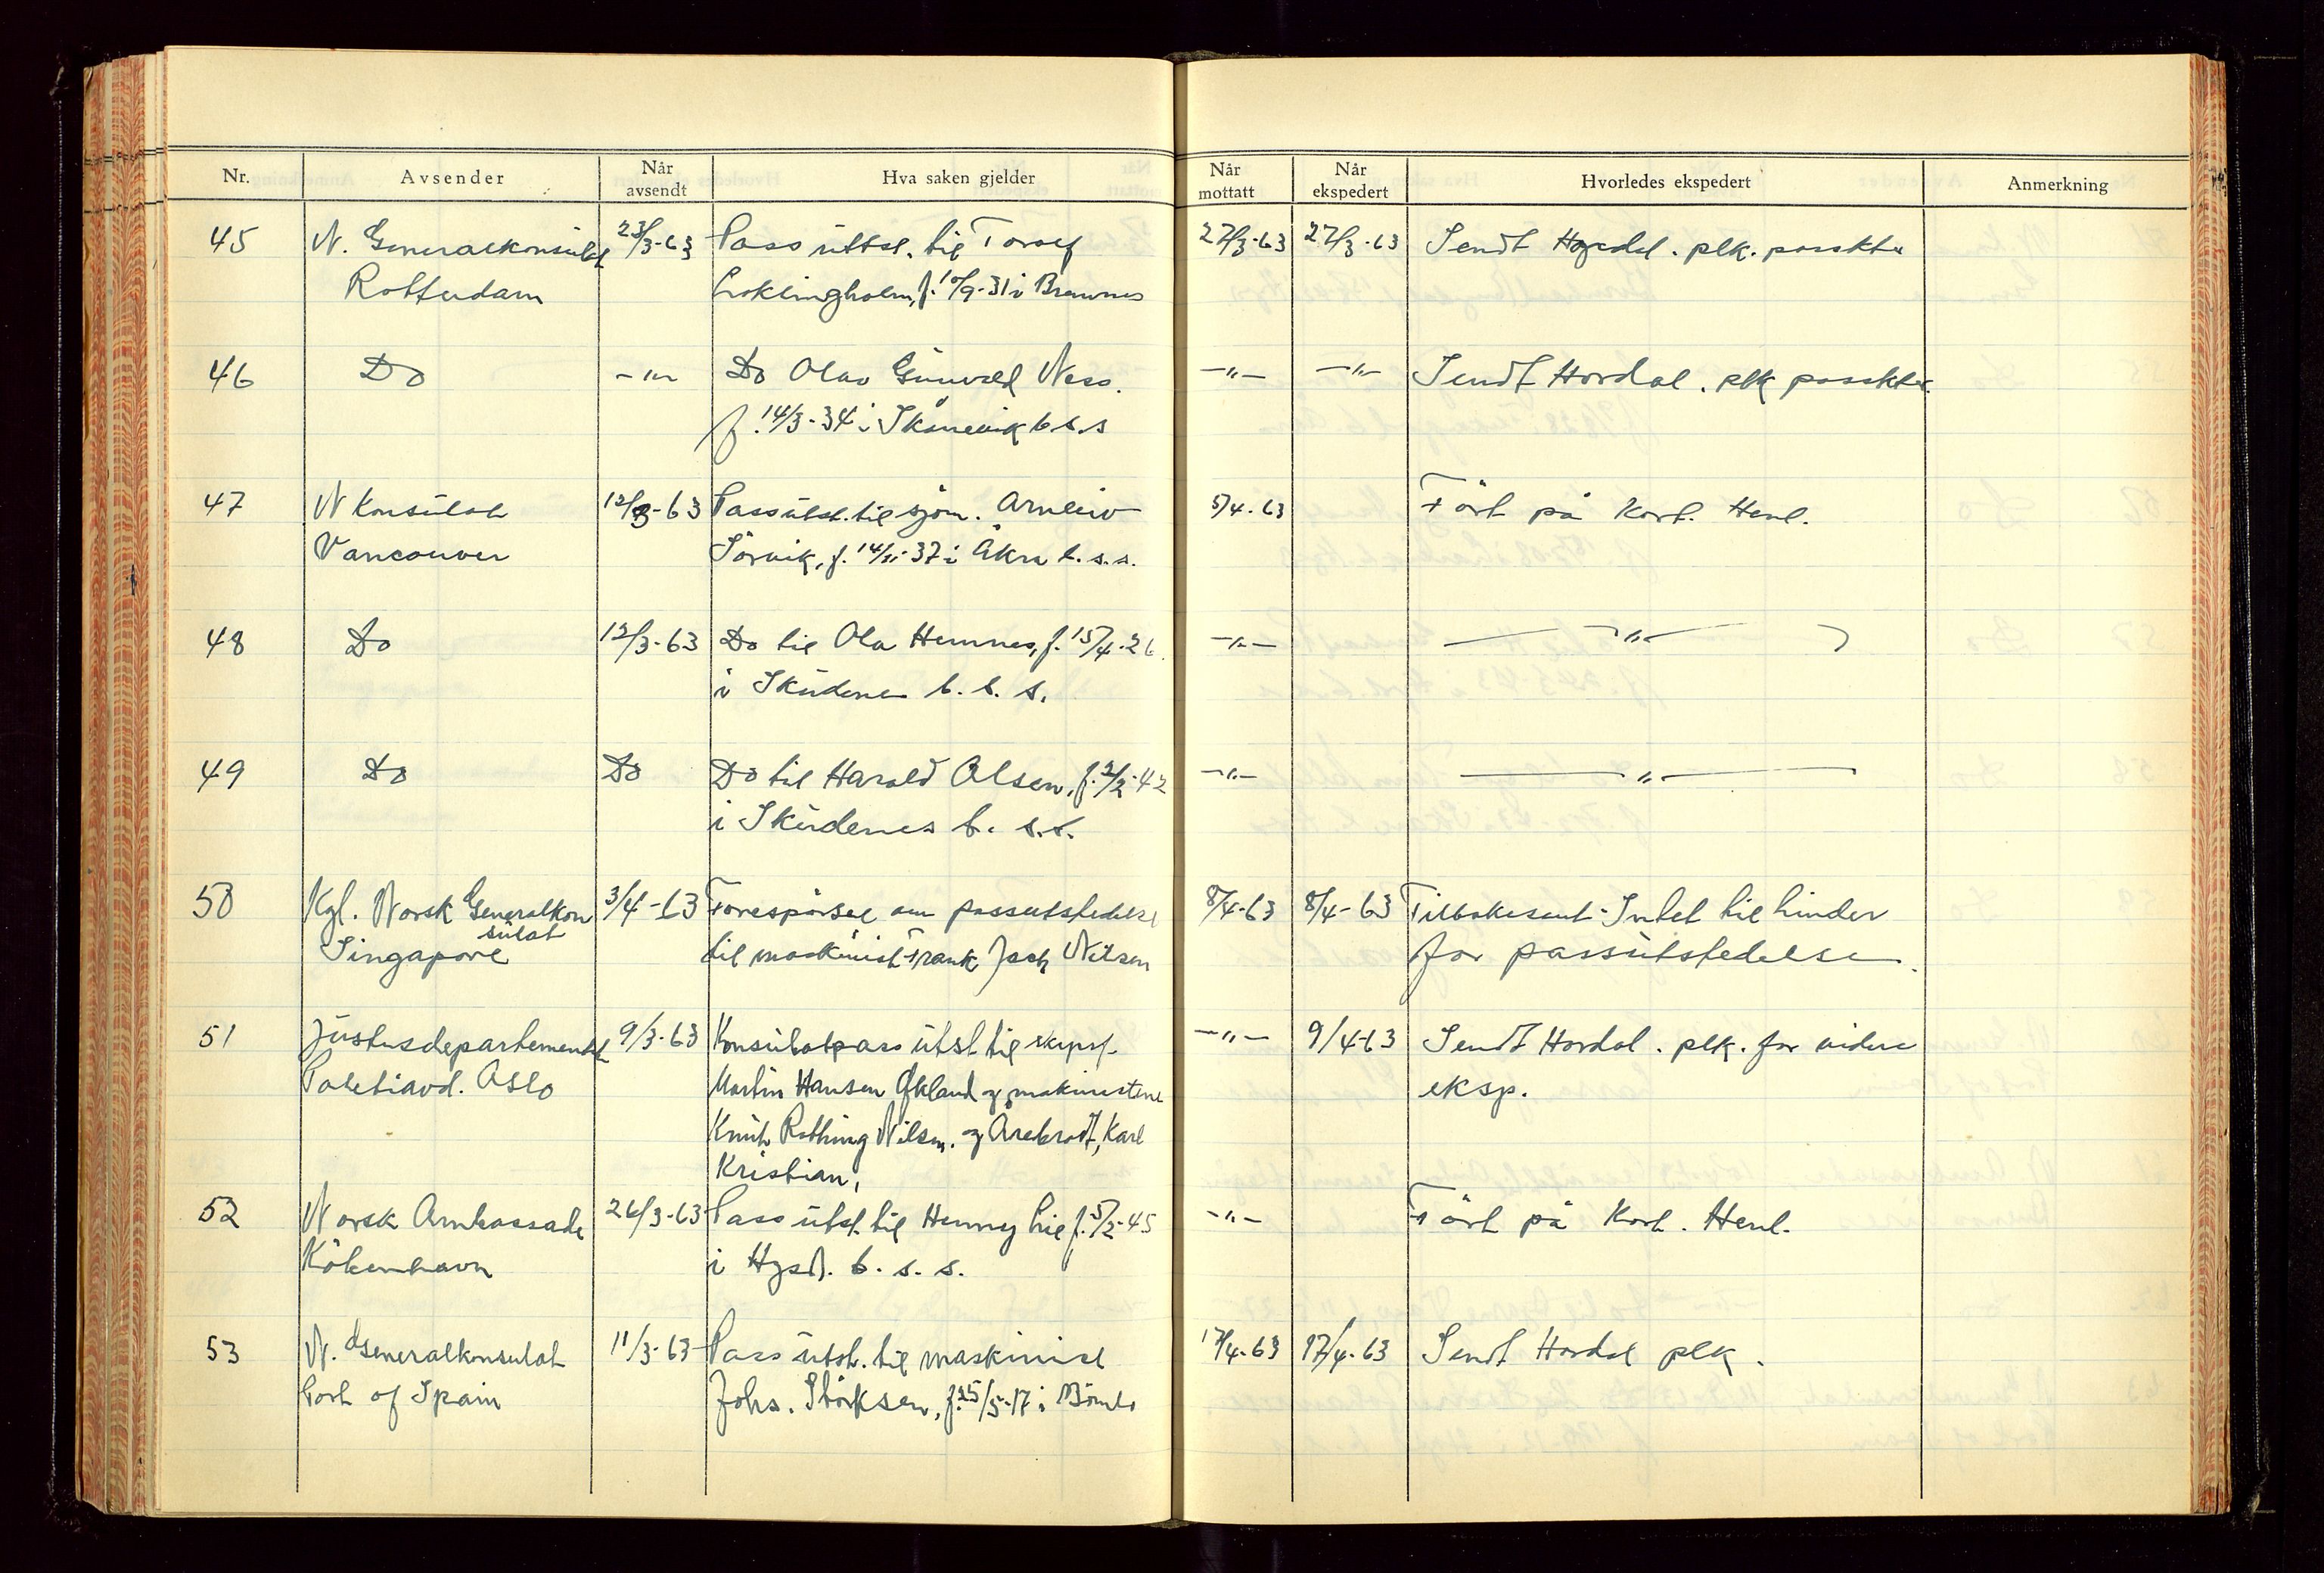 Nr.
Avsender
Når
avsendt
Hva saken gjelder
Når
mottatt
Når
ekspedert
Hvorledes ekspedert
Anmerkning
45 N. Generalkonsulat 23/3-63 Pass utst. til Torleif 27/3-63 27/3-63 Sendt Hordal. plk. passktr
Rotterdam f. 10/9-31 i
46 Do -"- Do Olav Gunvald Ness. -"- -"- Sendt Hordal. plk passktr.
f. 14/3-34 i Skånevik b.s.s
47 N Konsulat 12/3-63 Pass utst. til sjøm. Arnleiv 5/4-63 Ført på kort. Henl.
Vancouver Sørvik, f. 14/11-37 i Åkra b.s.s.
48 Do 12/3-63 Do til Ola Hemnes, f. 15/4-26 -"- -"-
i Skudenes b.s.s.
49 Do Do Do til Harald Olsen, f. 2/2-42 -"- -"-
i Skudenes b.s.s.
50 Kgl. Norsk Generalkon 3/4-63 Forespørsel om passutstedelse 8/4-63 8/4-63 Tilbakesent. Intet til hinder
sulat
Singapore til maskinist Frank Jack Nilsen for passutstedelse.
51 Justisdepartementet 9/3-63 Konsulatpass utst til skipsf. -"- 9/4-63 Sendt Hordal. plk. for videre
Politiavd. Oslo Martin Hansen Økland og maskinistene eksp.
Knut Nilsen. og Karl
Kristian,
52 Norsk Ambassade 26/3-63 Pass utst. til Henny Lie f. 5/2-45 -"- Ført på kort. Henl.
København i Hgsd. b.s.s.
53 N. Generalkonsulat 11/3-63 Pass utst. til maskinist 17/4-63 17/4-63 Sendt Hordal plk.
Port of Spain Johs. Størksen, f. 25/5-17 i Bømlo